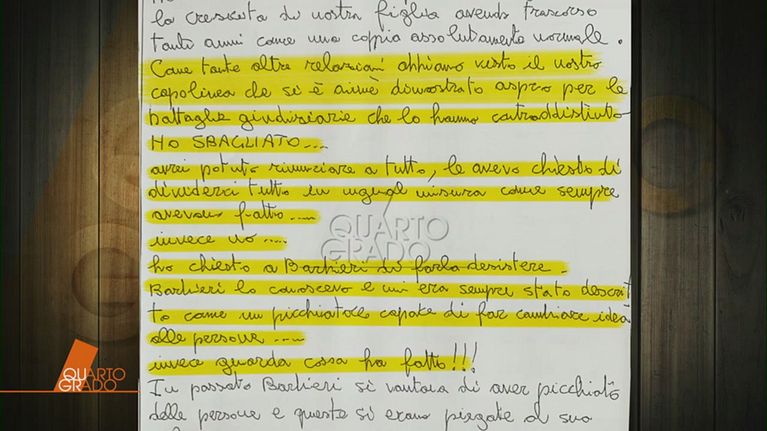 la crescita di nostra figlia avendo trascorso
tanti anni come una coppia assolutamente normale.
Come tante altre relazioni abbiamo visto il nostro
capolinea che si è aimè dimostrato aspro per le
battaglie giudiziarie che lo hanno contraddistinto
HO SBAGLIATO....
avrei potuto rinunciare a tutto, le avevo chiesto di
dividerci tutto in ugual misura come sempre
avevamo fatto.....
invece no.....
ho chiesto a Barbieri di farla desistere.
Barbieri lo conoscevo e mi era sempre stato descrit
to come un picchiatore capace di far cambiare idea
alle persone.....
invece guarda cosa ha fatto!!!
In passato Barbieri si vantava di aver picchiato
delle persone e queste si erano piegate al suo
QUARTO
GRADO
QUARTO
GRADO